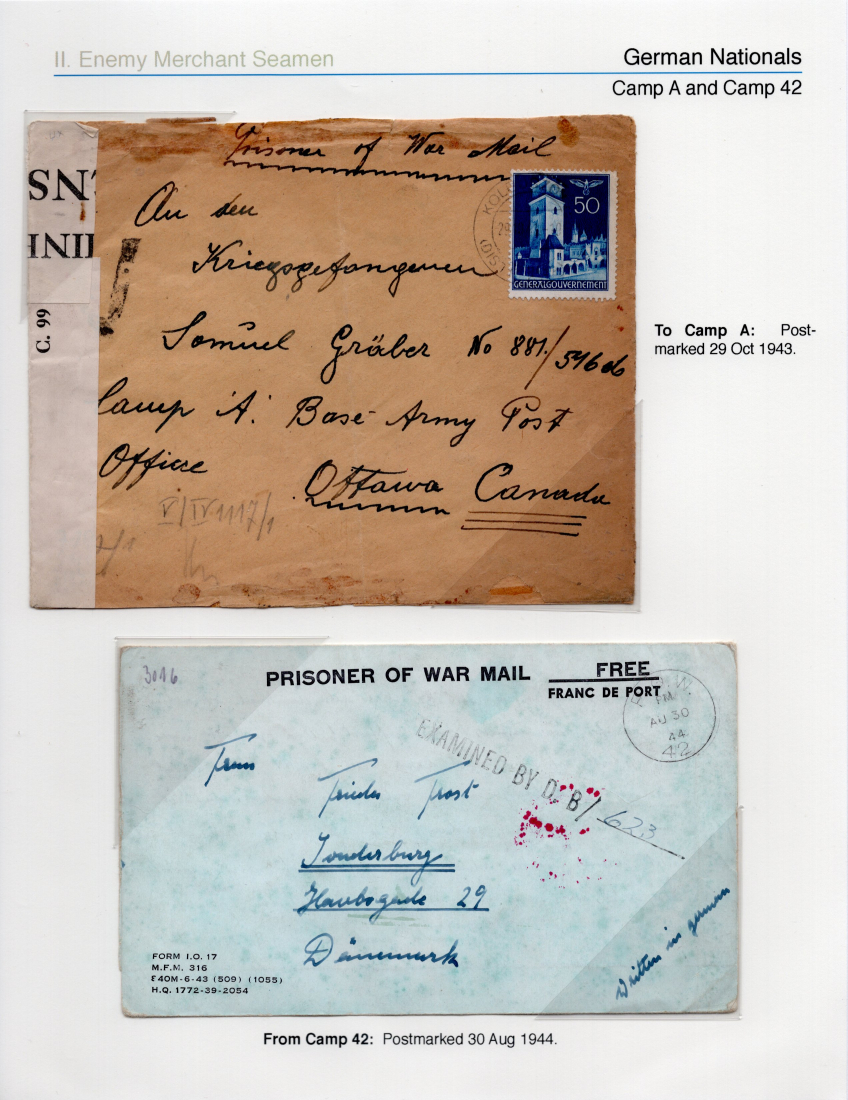 II. Enemy Merchant Seamen
German Nationals
Camp A and Camp 42
Prisoner of War Mail
An den
Kriegsgefangenen
Samuel Gräber No 881/
Camp "A" Base Army Post
Office Ottawa Canada
V/IV 1117/1
C. 99
50
GENERALGOUVERNEMENT
To Camp A: Post-
marked 29 Oct 1943.
3016
PRISONER OF WAR MAIL FREE
FRANC DE PORT
P.O.W.
PM
AU 30
44
42
EXAMINED BY D.B/623
Frau
Frieda Trost
Sonderburg
29
Dänemark
Written in german
FORM I.O. 17
M.F.M. 316
840M-6-43 (509) (1055)
H.Q. 1772-39-2054
From Camp 42: Postmarked 30 Aug 1944.